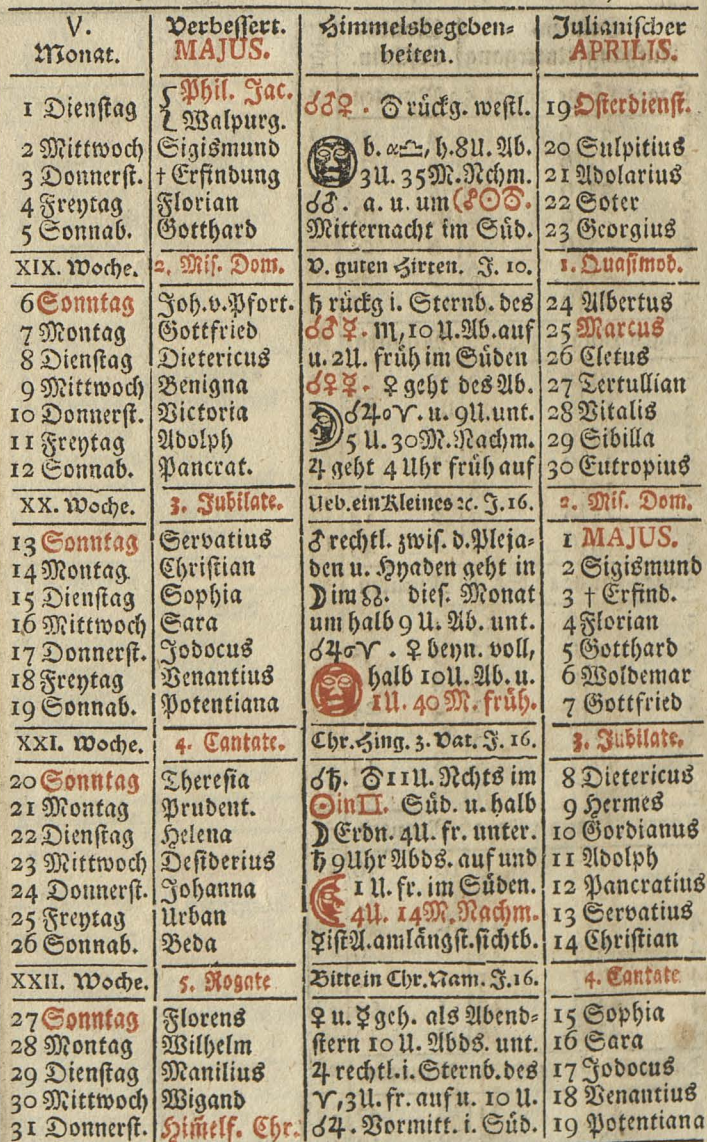 V. Monat. Verbessert. MAJUS. Himmelsbegeben-heiten. Julianischer APRILIS.
1 Dienstag Phil. Jac. Walpurg. ☌♂♀. ⛢ rückg. westl. 19 Osterdienst.
2 Mittwoch Sigismund b. α♎, h. 8U. Ab. 20 Sulpitius
3 Donnerst. † Erfindung 3U. 35M. Nchm. 21 Adolarius
4 Freytag Florian ☌♂. a. u. um (☍☉⛢. 22 Soter
5 Sonnab. Gotthard Mitternacht im Süd. 23 Georgius
XIX. Woche. 2. Mis. Dom. V. guten Hirten. J. 10. 1. Quasimod.
6 Sonntag Joh. v. Pfort. ♄ rückg i. Sternb. des 24 Albertus
7 Montag Gottfried ☌♂☿. ♏, 10 U. Ab. auf 25 Marcus
8 Dienstag Dietericus u. 2U. früh im Süden 26 Cletus
9 Mittwoch Benigna ☌♀☿. ♀ geht des Ab. 27 Tertullian
10 Donnerst. Victoria ☌♃o♈. u. 9U. unt. 28 Vitalis
11 Freytag Adolph 5 U. 30M. Nachm. 29 Sibilla
12 Sonnab. Pancrat. ♃ geht 4 Uhr früh auf 30 Eutropius
XX. Woche. 3. Jubilate. Ueb. ein Kleines ꝛc. J. 16. 2. Mis. Dom.
13 Sonntag Servatius ♂ rechtl. zwis. d. Pleja- 1 MAJUS.
14 Montag Christian den u. Hyaden geht in 2 Sigismund
15 Dienstag Sophia ☽ im ☊. dies. Monat 3 † Erfind.
16 Mittwoch Sara um halb 9 U. Ab. unt. 4 Florian
17 Donnerst. Jodocus ☌♃σ♈. ♀ beyn. voll, 5 Gotthard
18 Freytag Venantius halb 10U. Ab. u. 6 Woldemar
19 Sonnab. Potentiana 1U. 40 M. früh. 7 Gottfried
XXI. Woche. 4. Cantate. Chr. Hing. z. Vat. J. 16. 3. Jubilate.
20 Sonntag Theresia ☌♄. ⛢ 11U. Nchts im 8 Dietericus
21 Montag Prudent. ☉ in ♊. Süd. u. halb 9 Hermes
22 Dienstag Helena ☽ Erdn. 4U. fr. unter. 10 Gordianus
23 Mittwoch Desiderius ♄ 9 Uhr Abds. auf und 11 Adolph
24 Donnerst. Johanna 1 U. fr. im Süden. 12 Pancratius
25 Freytag Urban 4U. 14M. Nachm. 13 Servatius
26 Sonnab. Beda ☿ ist A. am längst. sichtb. 14 Christian
XXII. Woche. 5. Rogate Bitte in Chr. Nam. J. 16. 4. Cantate
27 Sonntag Florens ♀ u. ☿ geh. als Abend- 15 Sophia
28 Montag Wilhelm stern 10 U. Abds. unt. 16 Sara
29 Dienstag Manilius ♃ rechtl. i. Sternb. des 17 Jodocus
30 Mittwoch Wigand ♈, 3U. fr. auf u. 10 U. 18 Venantius
31 Donnerst. Him̄elf. Chr. ☌♃. Vormitt. i. Süd. 19 Potentiana